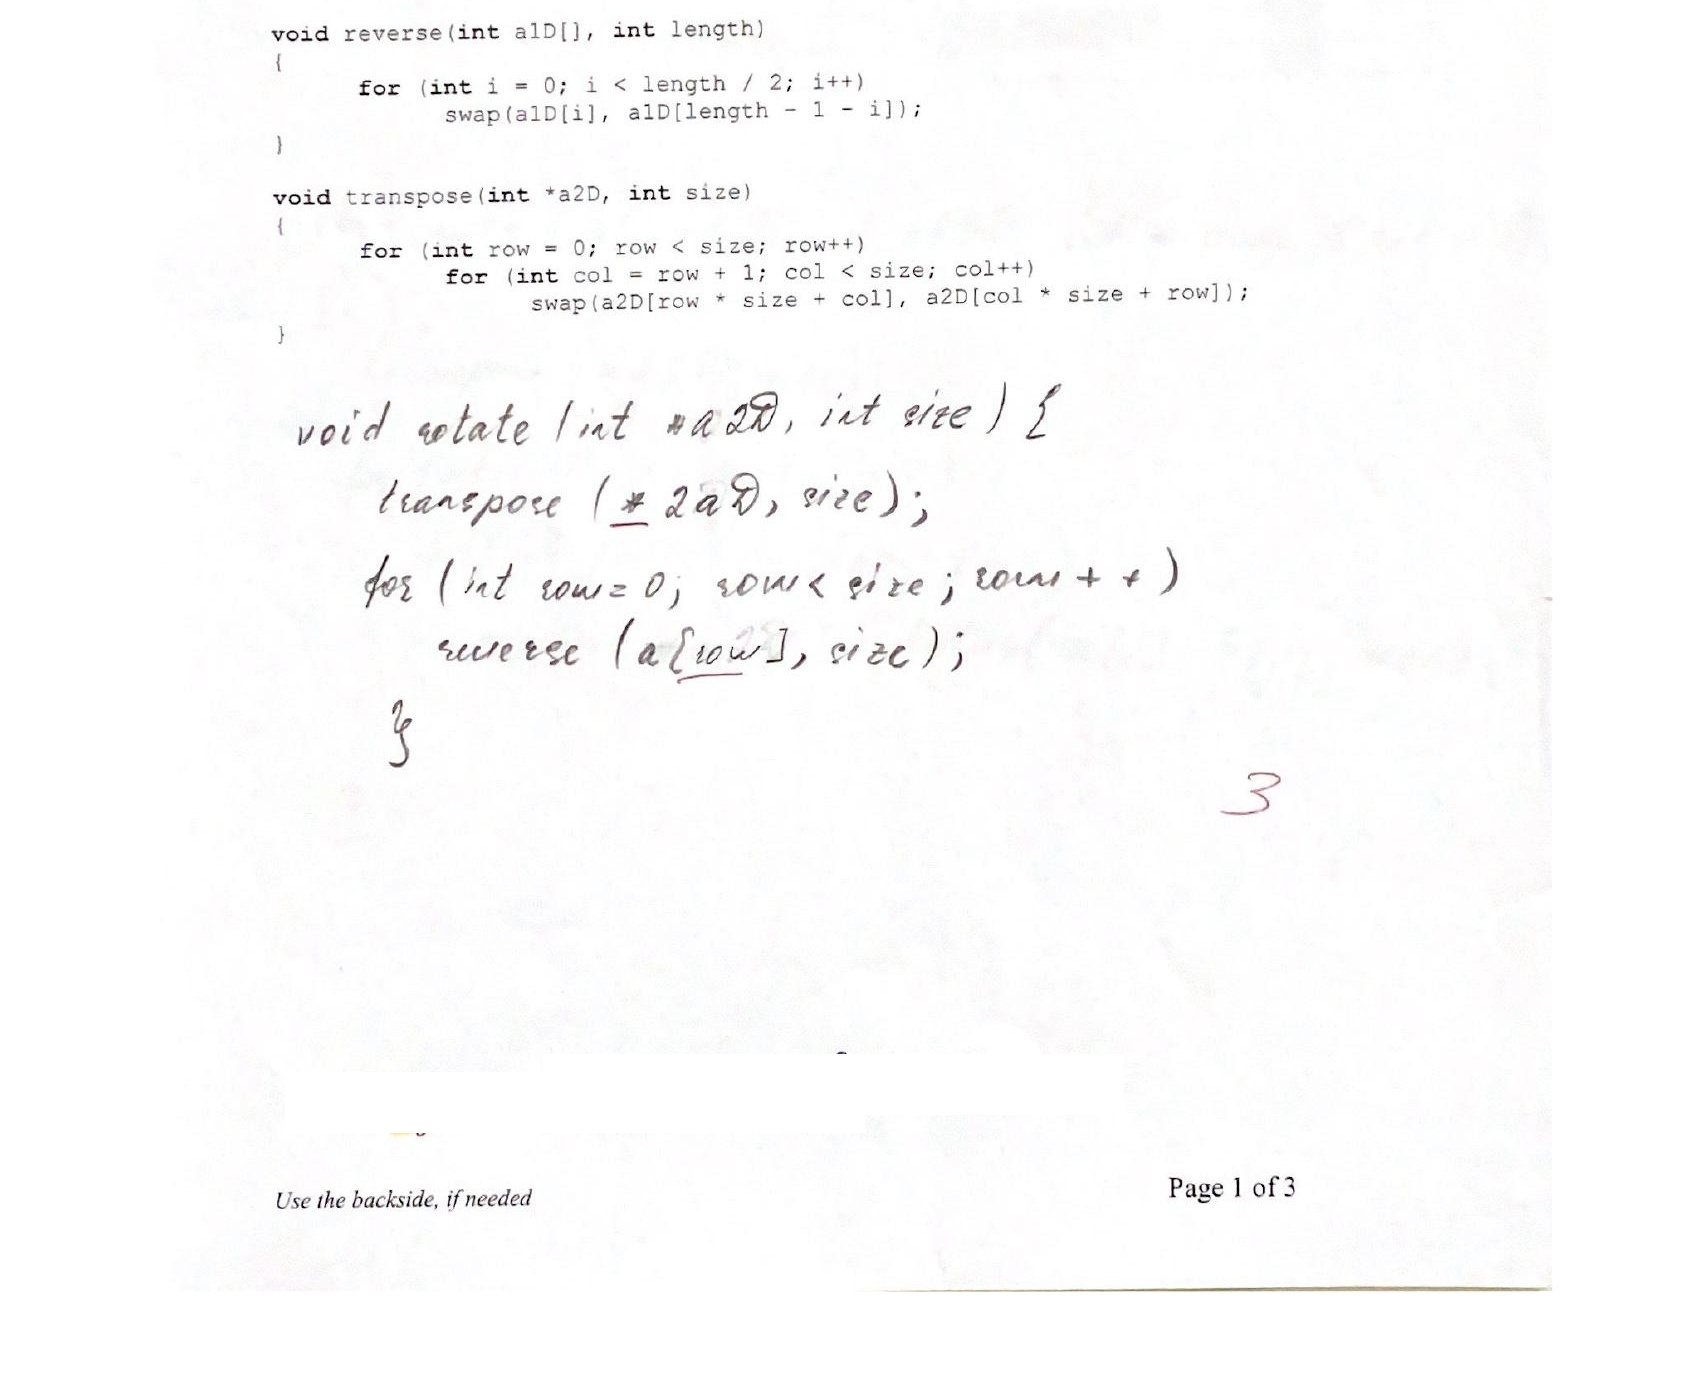 void reverse(int a1D[], int length)
{
for (int i = 0; i < length / 2; i++)
swap(a1D[i], a1D[length - 1 - i]);
}
void transpose(int *a2D, int size)
{
for (int row = 0; row < size; row++)
for (int col = row + 1; col < size; col++)
swap(a2D[row * size + col], a2D[col * size + row]);
}
void rotate (int *a2D, int size) {
transpose (* 2aD, size);
for (int row = 0; row < size; row++)
reverse (a[row], size);
}
3
Use the backside, if needed
Page 1 of 3